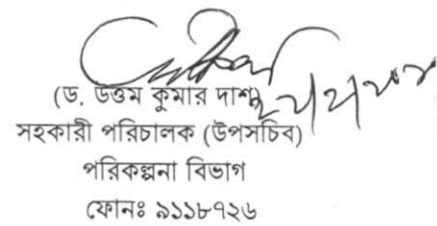 (ড. উত্তম কুমার দাশ)
সহকারী পরিচালক (উপসচিব)
পরিকল্পনা বিভাগ
ফোনঃ ৯১১৮৭২৬